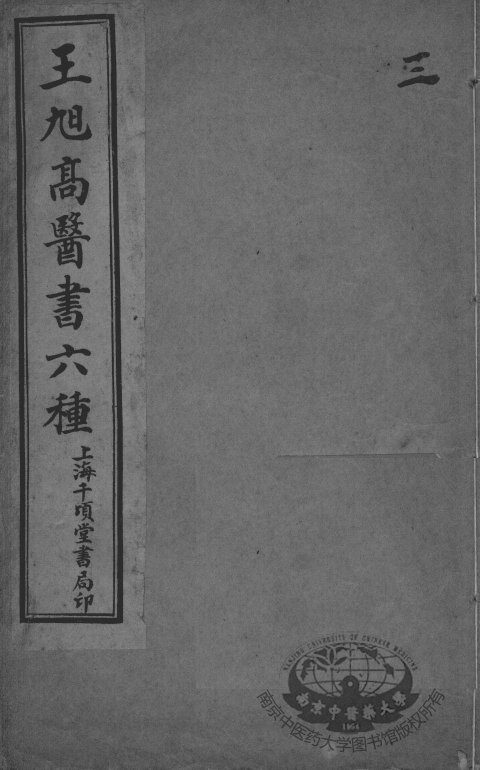 三
王旭高醫書六種
上海千頃堂書局印
NANJING UNIVERSITY OF CHINESE MEDICINE
南京中醫藥大學
1954
南京中医药大学图书馆版权所有